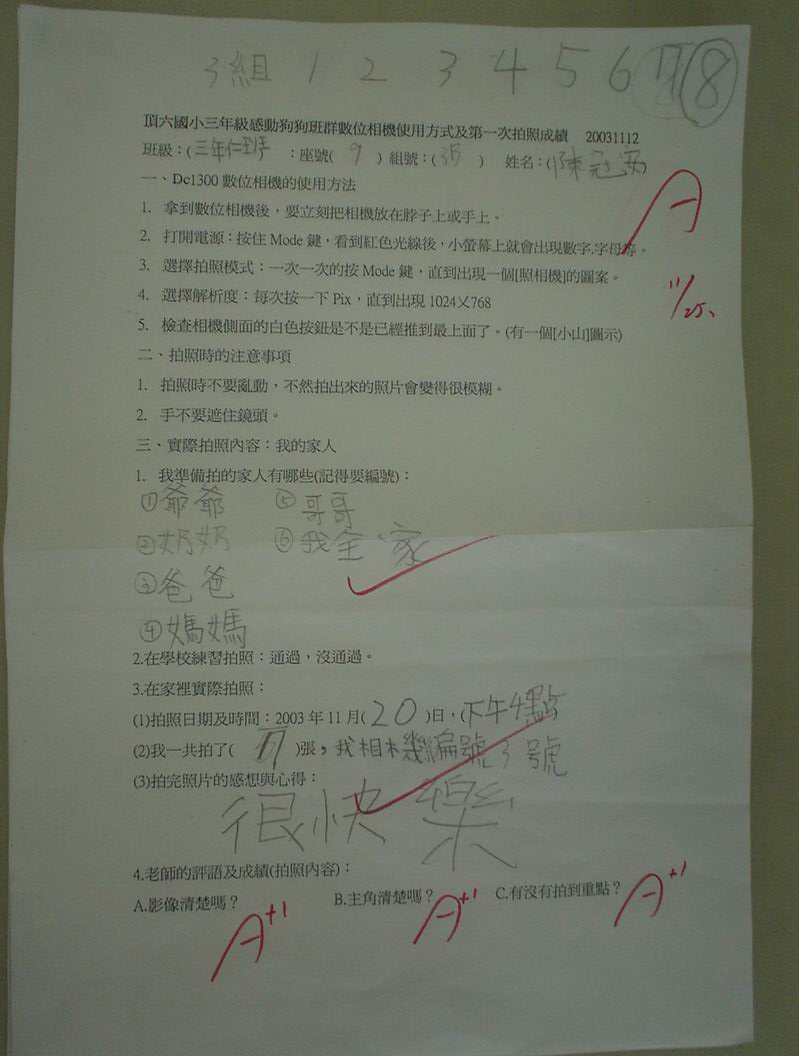 3組 1 2 3 4 5 6 7 8
頂六國小三年級感動狗狗班群數位相機使用方式及第一次拍照成績 20031112
班級:(三年仁班 :座號( 9 ) 組號:(3 ) 姓名:(陳冠
A
一、Dc1300 數位相機的使用方法
1. 拿到數位相機後,要立刻把相機放在脖子上或手上。
2. 打開電源:按住 Mode 鍵,看到紅色光線後,小螢幕上就會出現數字.字母等。
3. 選擇拍照模式:一次一次的按 Mode 鍵,直到出現一個[照相機]的圖案。
11/25
4. 選擇解析度:每次按一下 Pix,直到出現 1024╳768
5. 檢查相機側面的白色按鈕是不是已經推到最上面了。(有一個[小山]圖示)
二、拍照時的注意事項
1. 拍照時不要亂動,不然拍出來的照片會變得很模糊。
2. 手不要遮住鏡頭。
三、實際拍照內容:我的家人
1. 我準備拍的家人有哪些(記得要編號):
①爺爺 ⑤哥哥
②奶奶 ⑥我全家
③爸爸
④媽媽
2.在學校練習拍照:通過,沒通過。
3.在家裡實際拍照:
(1)拍照日期及時間:2003 年 11 月( 20 )日,(下午4點
(2)我一共拍了( 7 )張,我相機編號3號
(3)拍完照片的感想與心得:
很快樂
4.老師的評語及成績(拍照內容):
A.影像清楚嗎? B.主角清楚嗎? C.有沒有拍到重點?
A+1 A+1 A+1